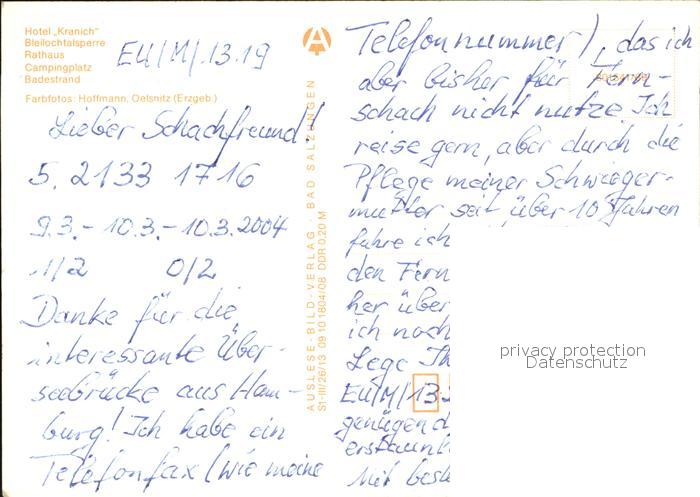 Hotel „Kranich"
Bleilochtalsperre
Rathaus
Campingplatz
Badestrand
Farbfotos: Hoffmann, Oelsnitz (Erzgeb.)
EU/M/.13.19
Lieber Schachfreund!
5. 2133 1716
9.3.-10.3.-10.3.2004
1/2 0/2
Danke für die
interessante Über-
seebrücke aus Ham-
burg! Ich habe ein
Telefonfax (wie meine
AUSLESE-BILD-VERLAG · BAD SALZUNGEN
S1-III/26/13 09 10 1804/08 DDR 0,20 M
Telefonnummer), das ich
aber bisher für Fern-
schach nicht nutze. Ich
reise gern, aber durch die
Pflege meiner Schwieger-
mutter seit über 10 Jahren
fahre ich
den Fern
her über
ich noch
Lege Ih
EU/M/13
genügend
erstaunl
Mit best
privacy protection
Datenschutz